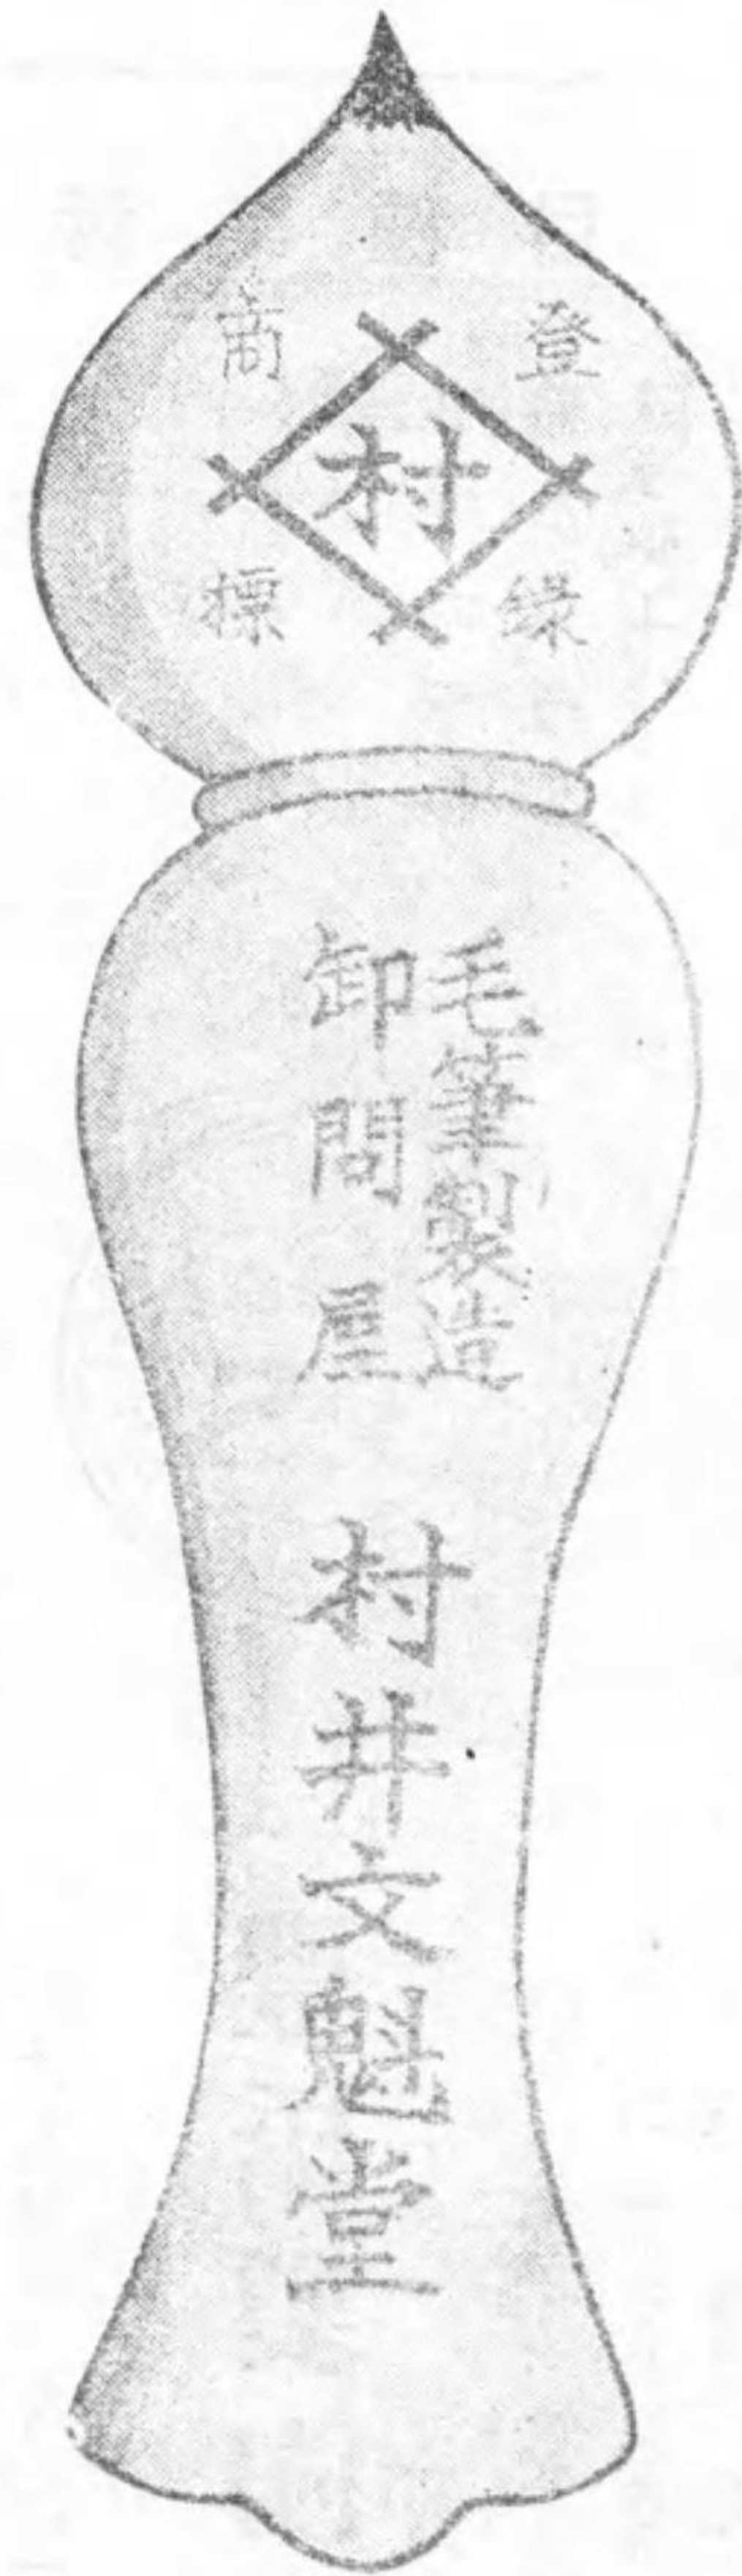 登録
商標
村
毛筆製造
卸問屋
村井文魁堂